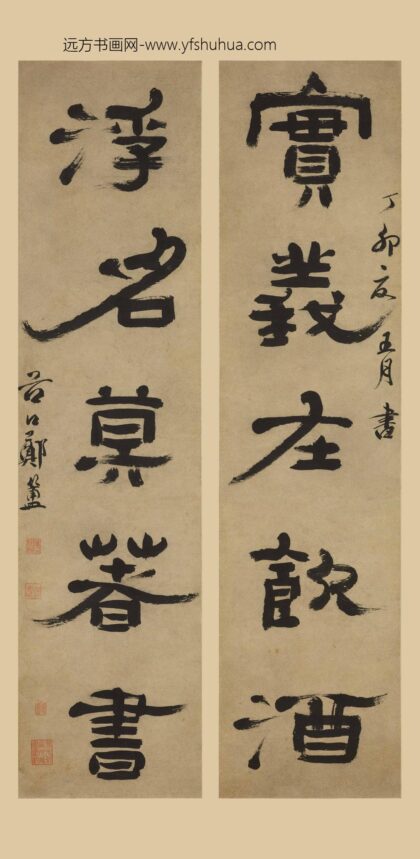 远方书画网-www.yfshuhua.com
實義在飲酒
丁卯夏五月書
浮名莫著書
谷口鄭簠